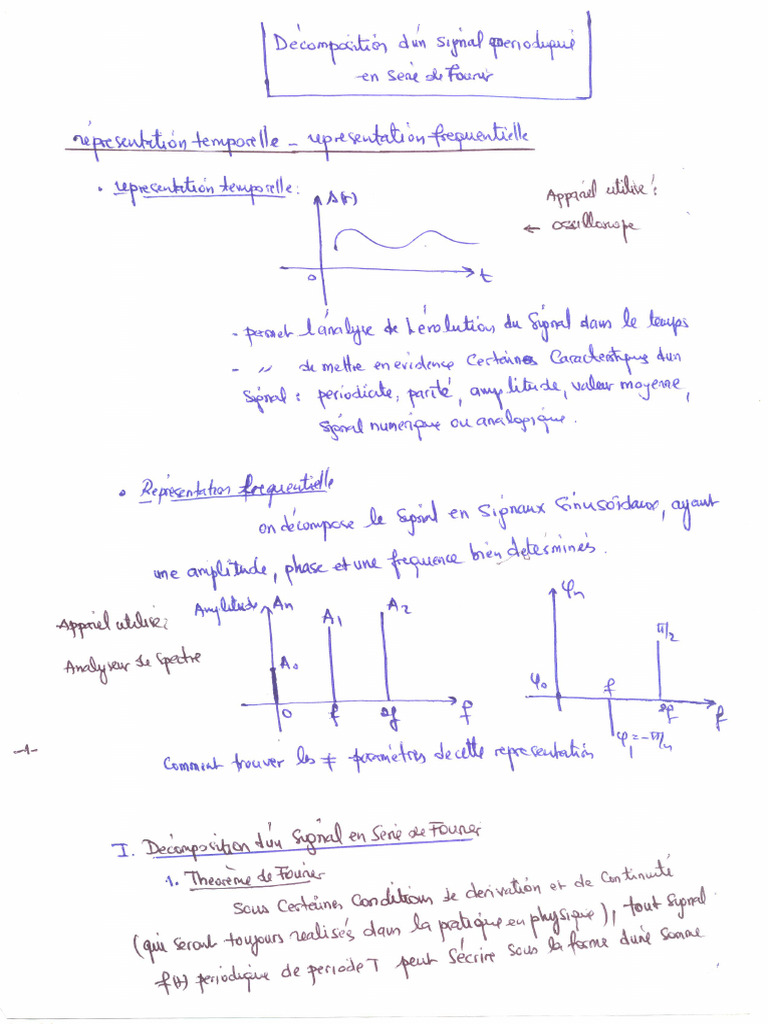 Décomposition d'un signal periodique
en Serie de Fourier
réprésentation temporelle - representation frequentielle
• representation temporelle:
s(t)
Appareil utilisé:
← oscilloscope
0
t
- permet l'analyse de l'évolution du signal dans le temps
- " de mettre en evidence certaines Caracteristiques d'un
signal : periodicite, parité, amplitude, valeur moyenne,
signal numerique ou analogique.
• Représentation frequentielle
on décompose le signal en signaux sinusoïdaux, ayant
une amplitude, phase et une frequence bien determinés.
Appareil utilisé:
Analyseur de spectre
Amplitude An
A0
A1
A2
0
f
2f
f
φn
φ0
f
π/2
2f
f
φ1 = -π/4
-1-
Comment trouver les ≠ paramètres de cette representation
I. Décomposition d'un signal en Serie de Fourier
1. Theorème de Fourier
Sous Certaines Conditions de derivation et de Continuité
(qui seront toujours realisés dans la pratique en physique), tout signal
f(t) periodique de periode T peut s'écrire sous la forme d'une somme